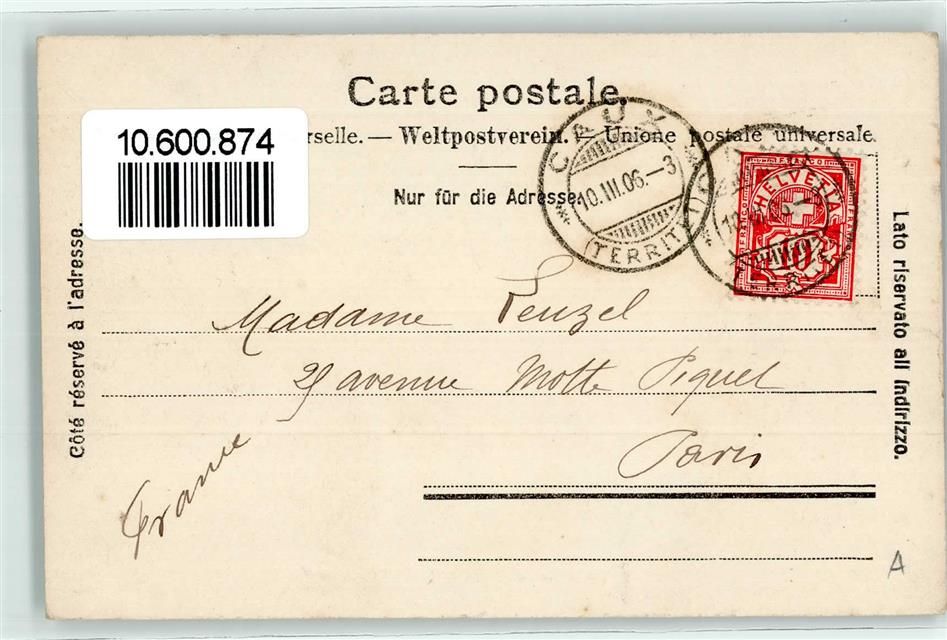 Carte postale.
10.600.874
rselle. — Weltpostverein. — Unione postale universale.
Nur für die Adresse.
CAUX
10.III.06.—3
(TERRIT)
FRANCO
HELVETIA
FRANCO
10
Côté réservé à l'adresse.
Lato riservato all indirizzo.
Madame
25 avenue Motte Piquet
Paris
France
A